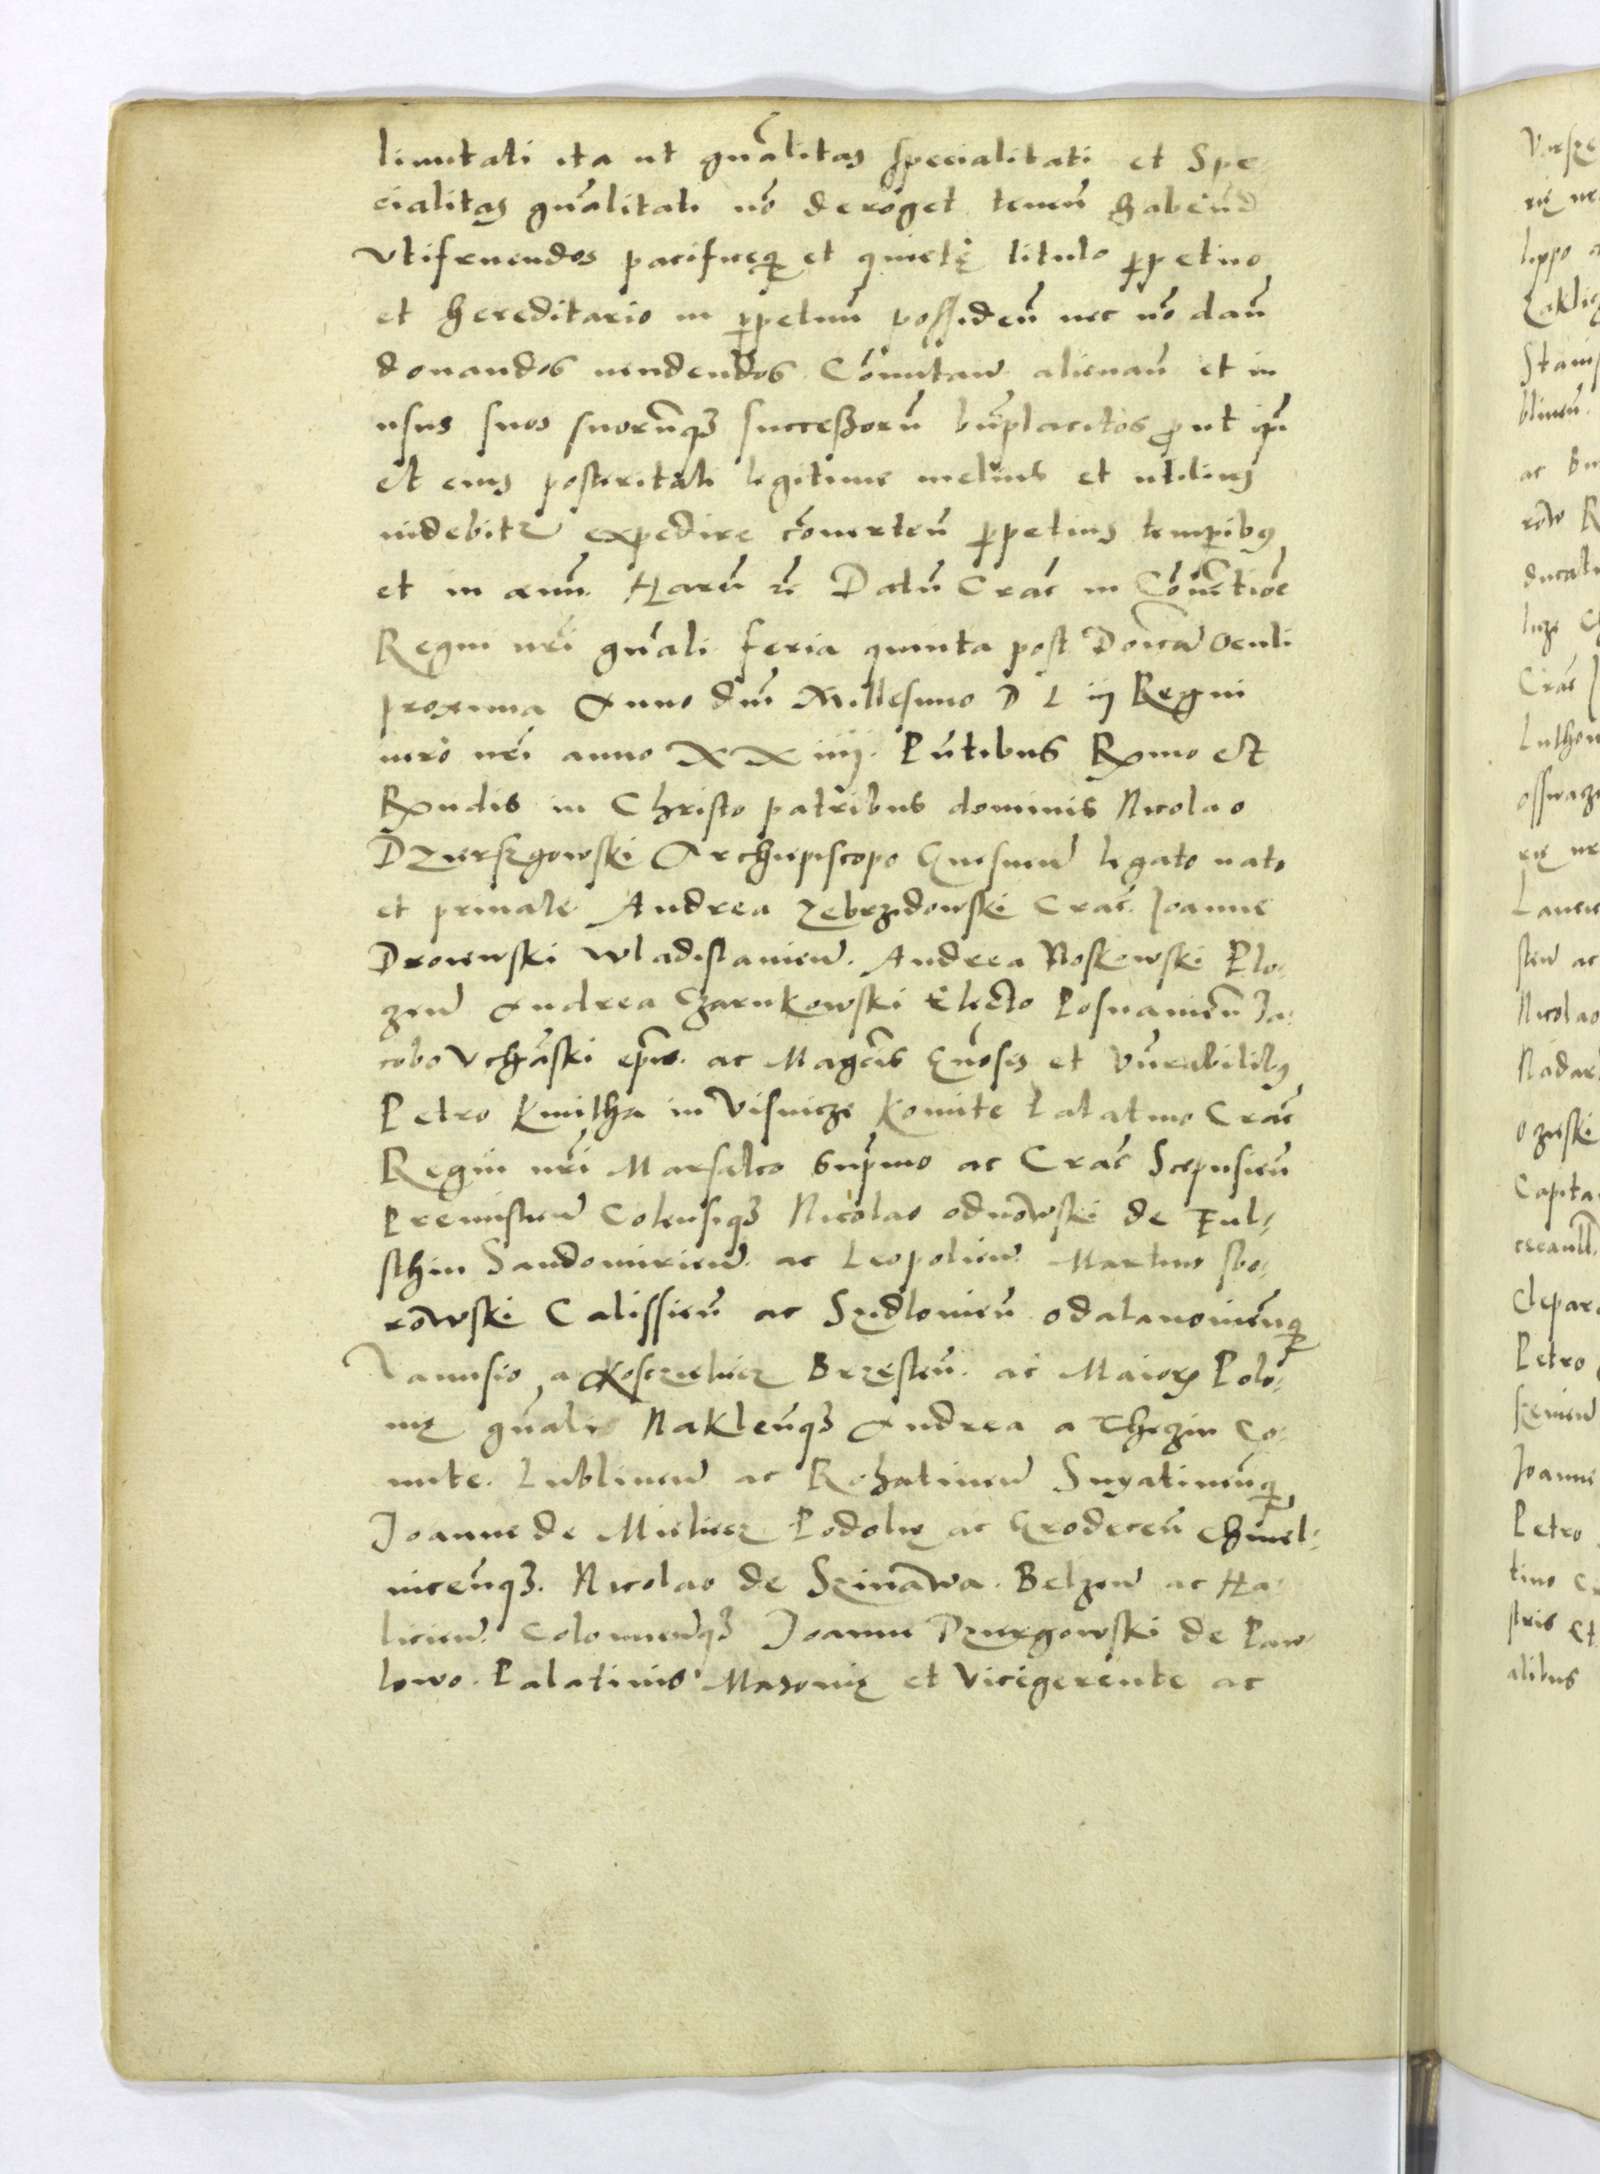 limitati ita ut gnalitas specialitati et Spe-
cialitas gnalitati no deroget tenen habend
Utifruendos pacificeq et quietę titulo ppetuo
et hereditario in ppetuu possiden nec no dan
donandos uendendos Comutan alienan et in
usus suos suorumq successoru bnplacitos put ipi
et eius posteritati legitime melius et utilius
uidebitur expedire conuerten ppetuis tempibus
et in aeuu. Haru rc Datu Crac in Conuctioe
Regni nri gnali feria quinta post Donica Oculi
proxima Anno dni Millesimo D L iij Regni
uero nri anno XXiiij. Pntibus Rmo et
Rndis in Christo patribus dominis Nicolao
Dzierzgowski Archiepiscopo Gnesnen legato nato
et primate Andrea Zebrzidowski Crac. Joanne
Droiewski Wladislauien. Andrea Noskowski Plo-
zen Andrea Czarnkowski Electo Posnanien Ja-
cobo Uchaski epis. ac Magcis Gnosis et Vnerabilibus
Petro Kmitha in Visnicze Komite Palatino Crac
Regni nri Marsalco Supmo ac Crac Scepusien
Premislien Colensiq Nicolao odnowski de Ful-
sthin Sandomirien. ac Leopolien. Martino sbo-
rowski Calissien ac Szidlouien odalanouienq
Janusio a Koscielecz Brzesten. ac Maioris Polo-
nię gnali Naklenq Andrea a Thezin Co-
mite. Lublinen ac Rohatinen Sniyatinenq
Joanne de Mielecz Podolię ac Grodecen Chmel-
nicenq. Nicolao de Szinawa. Belzen ac Ha-
licien. Colomienq Joanne Dzierzgowski de Paw-
lowo. Palatinis Masouię et Vicegerente ac